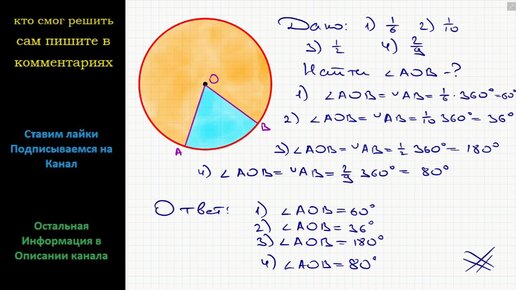 кто смог решить
сам пишите в
комментариях
Ставим лайки
Подписываемся на
Канал
Остальная
Информация в
Описании канала
O
A
B
Дано: 1) 1/6 2) 1/10
3) 1/2 4) 2/9
Найти ∠AOB - ?
1) ∠AOB = ◡AB = 1/6 · 360° = 60°
2) ∠AOB = ◡AB = 1/10 360° = 36°
3) ∠AOB = ◡AB = 1/2 360° = 180°
4) ∠AOB = ◡AB = 2/9 360° = 80°
Ответ: 1) ∠AOB = 60°
2) ∠AOB = 36°
3) ∠AOB = 180°
4) ∠AOB = 80°